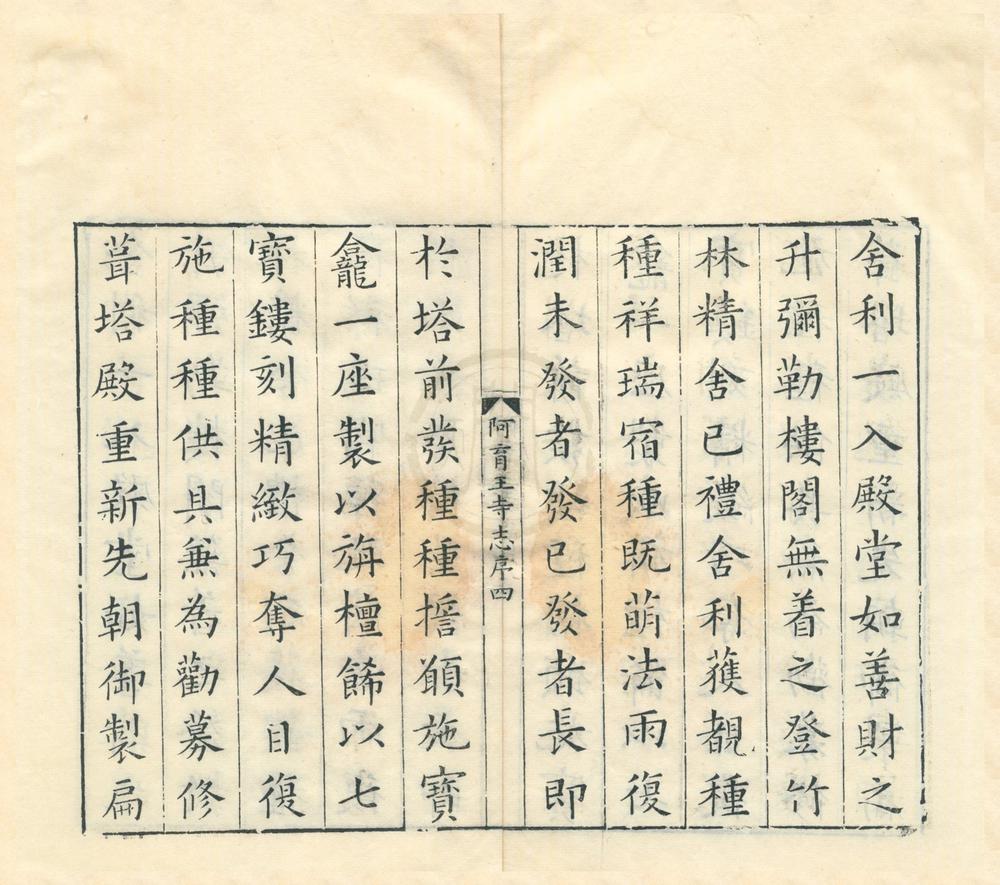 舍利一入殿堂如善財之
升彌勒樓閣無着之登竹
林精舍已禮舍利獲覩種
種祥瑞宿種既萌法雨復
潤未發者發已發者長即
阿育王寺志序四
於塔前發種種擔願施寶
龕一座製以旃檀餙以七
寶鏤刻精緻巧奪人目復
施種種供具兼為勸募修
葺塔殿重新先朝御製扁